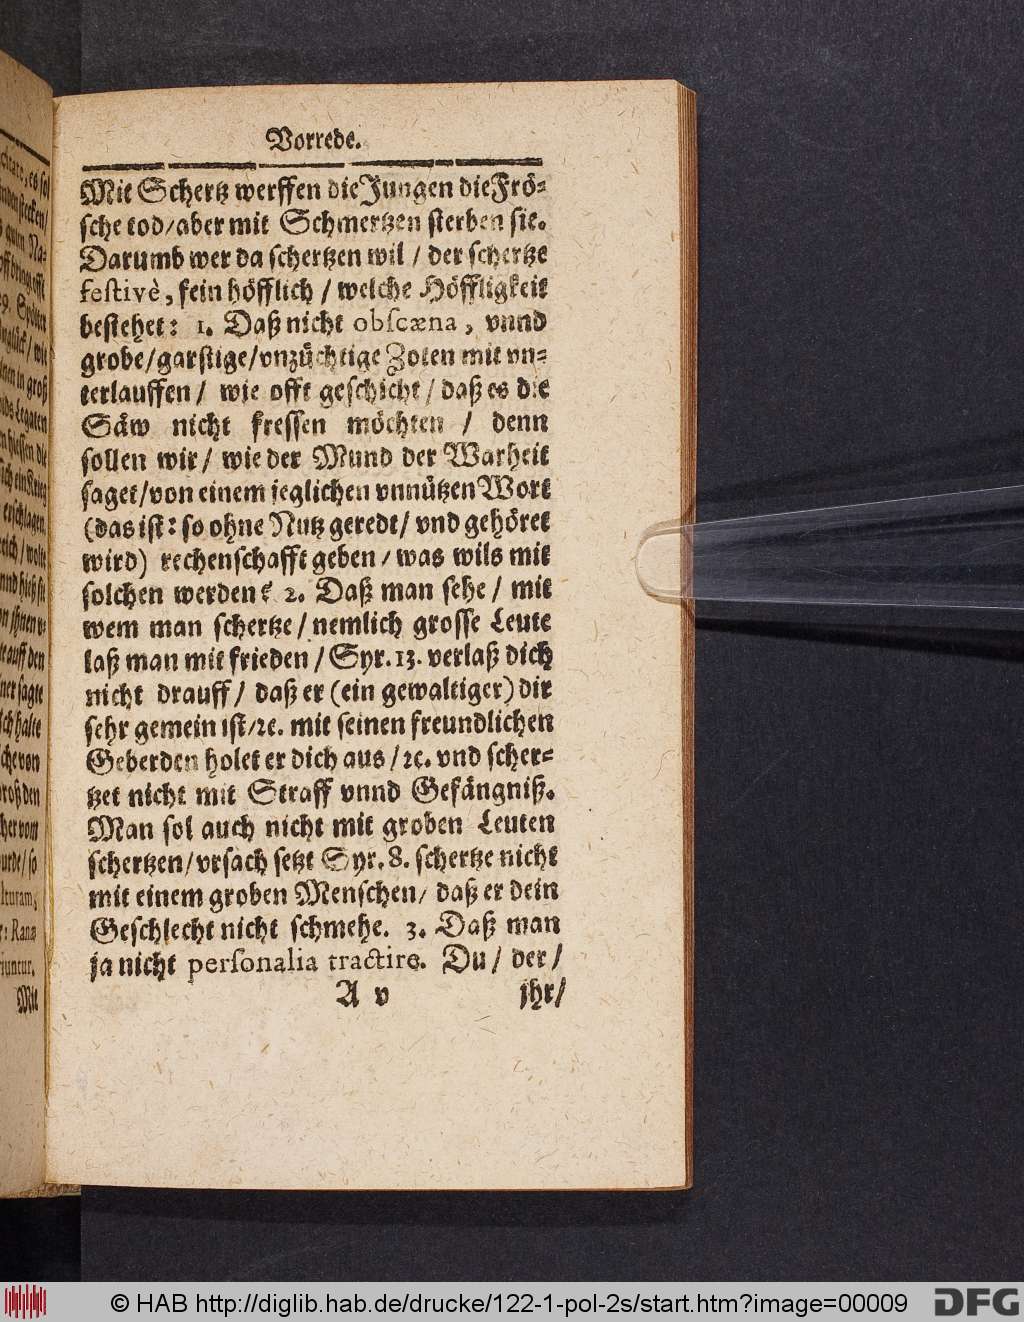 Vorrede.
Mit Schertz werffen die Jungen die Frö-
sche tod/aber mit Schmertzen sterben sie.
Darumb wer da schertzen wil / der schertze
festivè, fein höfflich / welche Höffligkeit
bestehet: 1. Daß nicht obscæna, vnnd
grobe/garstige/vnzüchtige Zoten mit vn-
terlauffen / wie offt geschicht / daß es die
Säw nicht fressen möchten / denn
sollen wir / wie der Mund der Warheit
saget/von einem jeglichen vnnützen Wort
(das ist: so ohne Nutz geredt/ vnd gehöret
wird) rechenschafft geben / was wils mit
solchen werden? 2. Daß man sehe / mit
wem man schertze / nemlich grosse Leute
laß man mit frieden / Syr. 13. verlaß dich
nicht drauff / daß er (ein gewaltiger) dir
sehr gemein ist/ꝛc. mit seinen freundlichen
Geberden holet er dich aus /ꝛc. vnd scher-
tzet nicht mit Straff vnnd Gefängniß.
Man sol auch nicht mit groben Leuten
schertzen/vrsach setzt Syr. 8. schertze nicht
mit einem groben Menschen/ daß er dein
Geschlecht nicht schmehe. 3. Daß man
ja nicht personalia tractire. Du / der /
A v jhr/
es sol
stecken/
Spötter
in groß
Legaten
hiessen die
ein Krieg
erschlagen,
auff den
sagte
halte
von
den
vom
/ so
Mit
© HAB http://diglib.hab.de/drucke/122-1-pol-2s/start.htm?image=00009
DFG